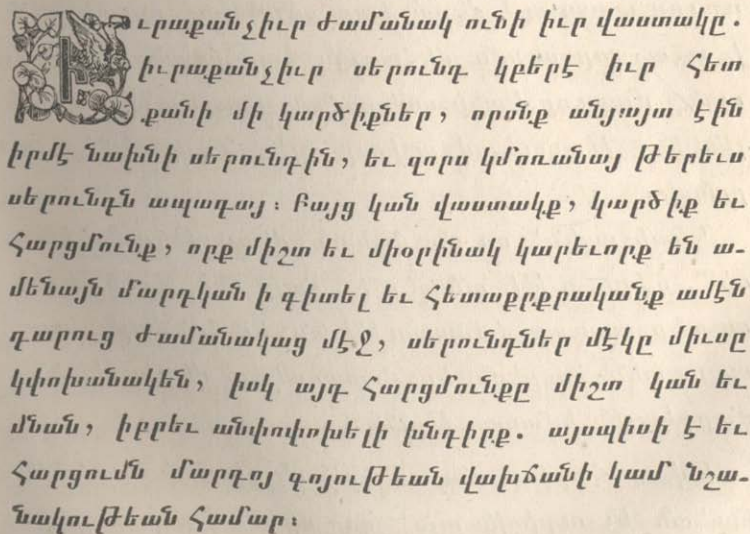 Իւրաքանչիւր ժամանակ ունի իւր վաստակը.
իւրաքանչիւր սերունդ կբերէ իւր հետ
քանի մի կարծիքներ, որոնք անյայտ էին
իրմէ նախնի սերունդին, եւ զորս կմոռանայ թերեւս
սերունդն ապագայ։ Բայց կան վաստակք, կարծիք եւ
հարցմունք, որք միշտ եւ միօրինակ կարեւորք են ա-
մենայն մարդկան ի գիտել եւ հետաքրքրականք ամէն
դարուց ժամանակաց մէջ, սերունդներ մէկը միւսը
կփոխանակեն, իսկ այդ հարցմունքը միշտ կան եւ
մնան, իբրեւ անփոփոխելի խնդիրք. այսպիսի է եւ
հարցումն մարդոյ գոյութեան վախճանի կամ նշա-
նակութեան համար։